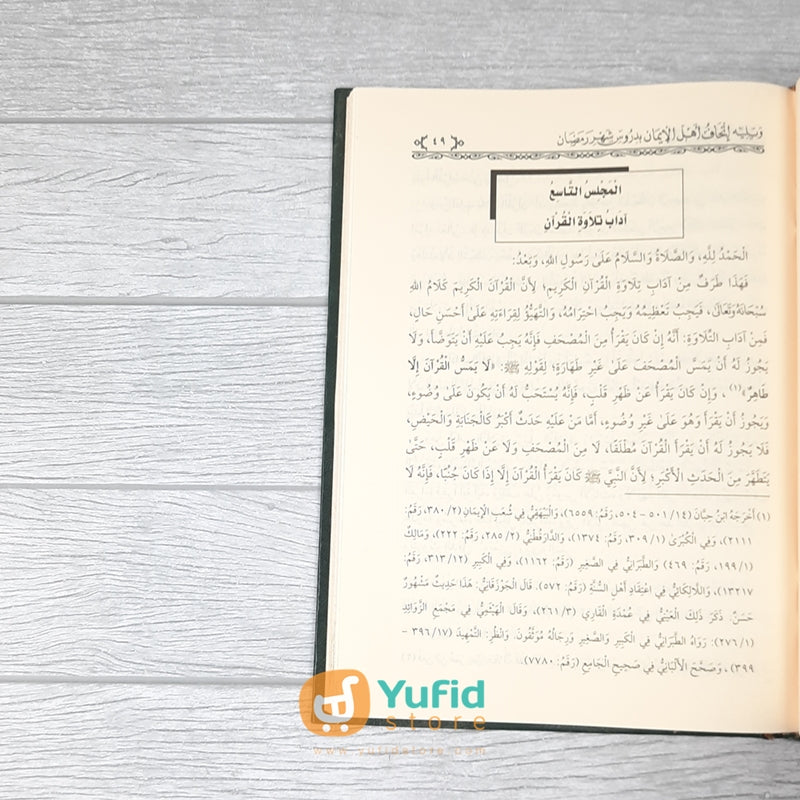 وَيَلِيهِ إِتْحَافُ أَهْلِ الإِيمَانِ بِدُرُوسِ شَهْرِ رَمَضَانَ
٤٩
الْمَجْلِسُ التَّاسِعُ
آدَابُ تِلَاوَةِ الْقُرْآنِ
الْحَمْدُ لِلَّهِ، وَالصَّلَاةُ وَالسَّلَامُ عَلَى رَسُولِ اللهِ، وَبَعْدُ:
فَهَذَا طَرَفٌ مِنْ آدَابِ تِلَاوَةِ الْقُرْآنِ الْكَرِيمِ؛ لِأَنَّ الْقُرْآنَ الْكَرِيمَ كَلَامُ اللهِ
سُبْحَانَهُ وَتَعَالَى، فَيَجِبُ تَعْظِيمُهُ وَيَجِبُ احْتِرَامُهُ، وَالتَّهَيُّؤُ لِقِرَاءَتِهِ عَلَى أَحْسَنِ حَالٍ،
فَمِنْ آدَابِ التِّلَاوَةِ: أَنَّهُ إِنْ كَانَ يَقْرَأُ مِنَ الْمُصْحَفِ فَإِنَّهُ يَجِبُ عَلَيْهِ أَنْ يَتَوَضَّأَ، وَلَا
يَجُوزُ لَهُ أَنْ يَمَسَّ الْمُصْحَفَ عَلَى غَيْرِ طَهَارَةٍ؛ لِقَوْلِهِ ﷺ: «لَا يَمَسُّ الْقُرْآنَ إِلَّا
طَاهِرٌ»(١)، وَإِنْ كَانَ يَقْرَأُ عَنْ ظَهْرِ قَلْبٍ، فَإِنَّهُ يُسْتَحَبُّ لَهُ أَنْ يَكُونَ عَلَى وُضُوءٍ،
وَيَجُوزُ أَنْ يَقْرَأَ وَهُوَ عَلَى غَيْرِ وُضُوءٍ، أَمَّا مَنْ عَلَيْهِ حَدَثٌ أَكْبَرُ كَالْجَنَابَةِ وَالْحَيْضِ،
فَلَا يَجُوزُ لَهُ أَنْ يَقْرَأَ الْقُرْآنَ مُطْلَقًا، لَا مِنَ الْمُصْحَفِ وَلَا عَنْ ظَهْرِ قَلْبٍ، حَتَّى
يَتَطَهَّرَ مِنَ الْحَدَثِ الْأَكْبَرِ؛ لِأَنَّ النَّبِيَّ ﷺ كَانَ يَقْرَأُ الْقُرْآنَ إِلَّا إِذَا كَانَ جُنُبًا، فَإِنَّهُ لَا
(١) أَخْرَجَهُ ابْنُ حِبَّانَ (١٤/ ٥٠١ - ٥٠٤، رَقَمُ: ٦٥٥٩)، وَالْبَيْهَقِيُّ فِي شُعَبِ الْإِيمَانِ (٢/ ٣٨٠، رَقَمُ:
٢١١١)، وَفِي الْكُبْرَى (١/ ٣٠٩، رَقَمُ: ١٣٧٤)، وَالدَّارَقُطْنِيُّ (٢/ ٢٨٥، رَقَمُ: ٢٢٢)، وَمَالِكٌ
(١/ ١٩٩، رَقَمُ: ٤٦٩) وَالطَّبَرَانِيُّ فِي الصَّغِيرِ (رَقَمُ: ١١٦٢)، وَفِي الْكَبِيرِ (١٢/ ٣١٣، رَقَمُ:
١٣٢١٧)، وَاللَّالَكَائِيُّ فِي اعْتِقَادِ أَهْلِ السُّنَّةِ (رَقَمُ: ٥٧٢). قَالَ الْجَوْزَقَانِيُّ: هَذَا حَدِيثٌ مَشْهُورٌ
حَسَنٌ. ذَكَرَ ذَلِكَ الْعَيْنِيُّ فِي عُمْدَةِ الْقَارِي (٣/ ٢٦١)، وَقَالَ الْهَيْثَمِيُّ فِي مَجْمَعِ الزَّوَائِدِ
(١/ ٢٧٦): رَوَاهُ الطَّبَرَانِيُّ فِي الْكَبِيرِ وَالصَّغِيرِ وَرِجَالُهُ مُوَثَّقُونَ. وَانْظُرِ: التَّمْهِيدَ (١٧/ ٣٩٦ -
٣٩٩)، وَصَحَّحَ الْأَلْبَانِيُّ فِي صَحِيحِ الْجَامِعِ (رَقَمُ: ٧٧٨٠).
Yufid
store
www.yufidstore.com